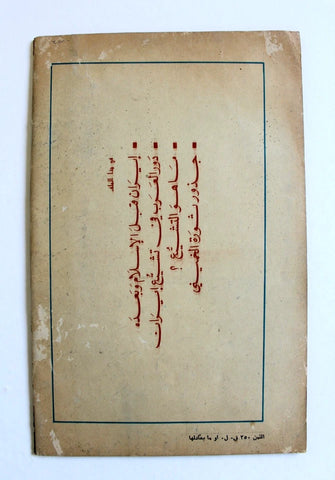 في هذا الملف
■ إيران قبل الإسلام وبعده
■ دور العرب في تشيّع إيران
■ ما هو التشيّع ؟
■ جذور ثورة الخميني
الثمن ٢٥٠ ق. ل. او ما يعادلها